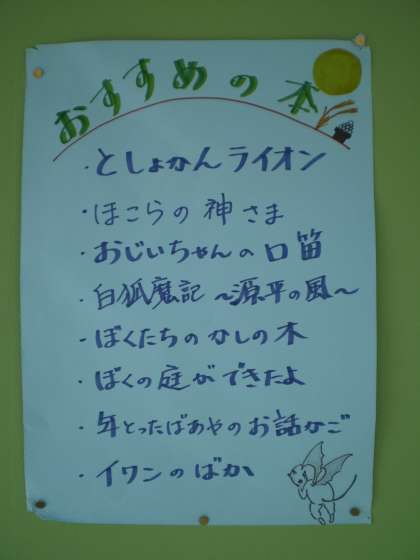 おすすめの本
・としょかんライオン
・ほこらの神さま
・おじいちゃんの口笛
・白狐魔記 〜源平の風〜
・ぼくたちのかしの木
・ぼくの庭ができたよ
・年とったばあやのお話かご
・イワンのばか